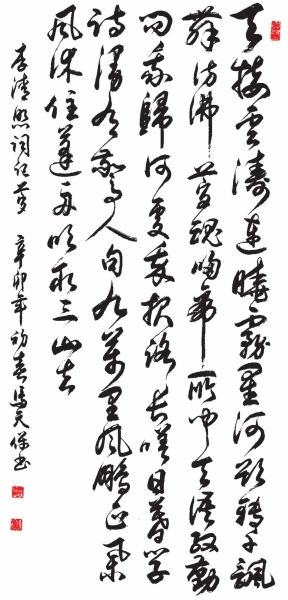 天接雲濤連曉霧星河欲轉千颿
舞彷彿夢魂歸帝所聞天語殷勤
問我歸何處我報路長嗟日暮學
詩漫有驚人句九萬里風鵬正舉
風休住蓬舟吹取三山去
李清照詞紀夢 辛卯年初春馬天保書